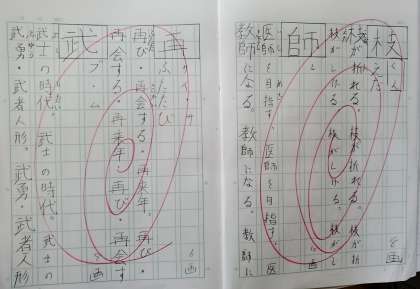 枝
えだ
枝が折れる。枝が折
枝がしげる。枝がしげる。
8画
師
シ
医師を目指す。医師を目指す。医
教師になる。教師になる。教師に
再
サイ・サ
ふたたび
再び・再会する・再来年。再び・
再会する・再来年。再び・再会す
6画
武
ブ・ム
武士の時代。武士の時代。
武勇・武者人形。武勇・武者人形
8画